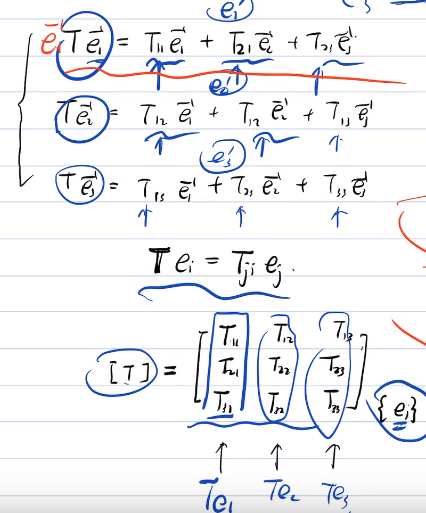 e₁'
e⃗₁ T e⃗₁ = T₁₁ e⃗₁ + T₂₁ e⃗₂ + T₃₁ e⃗₃
e₂'
T e⃗₂ = T₁₂ e⃗₁ + T₁₂ e⃗₂ + T₁₃ e⃗₃
e₃'
T e⃗₃ = T₁₃ e⃗₁ + T₂₃ e⃗₂ + T₃₃ e⃗₃
T eᵢ = Tⱼᵢ eⱼ.
T₁₁ T₁₂ T₁₃
[T] = [ T₂₁ T₂₂ T₃₃ ]
T₃₁ T₃₂ T₃₃ {eᵢ}
↑ ↑ ↑
Te₁ Te₂ Te₃